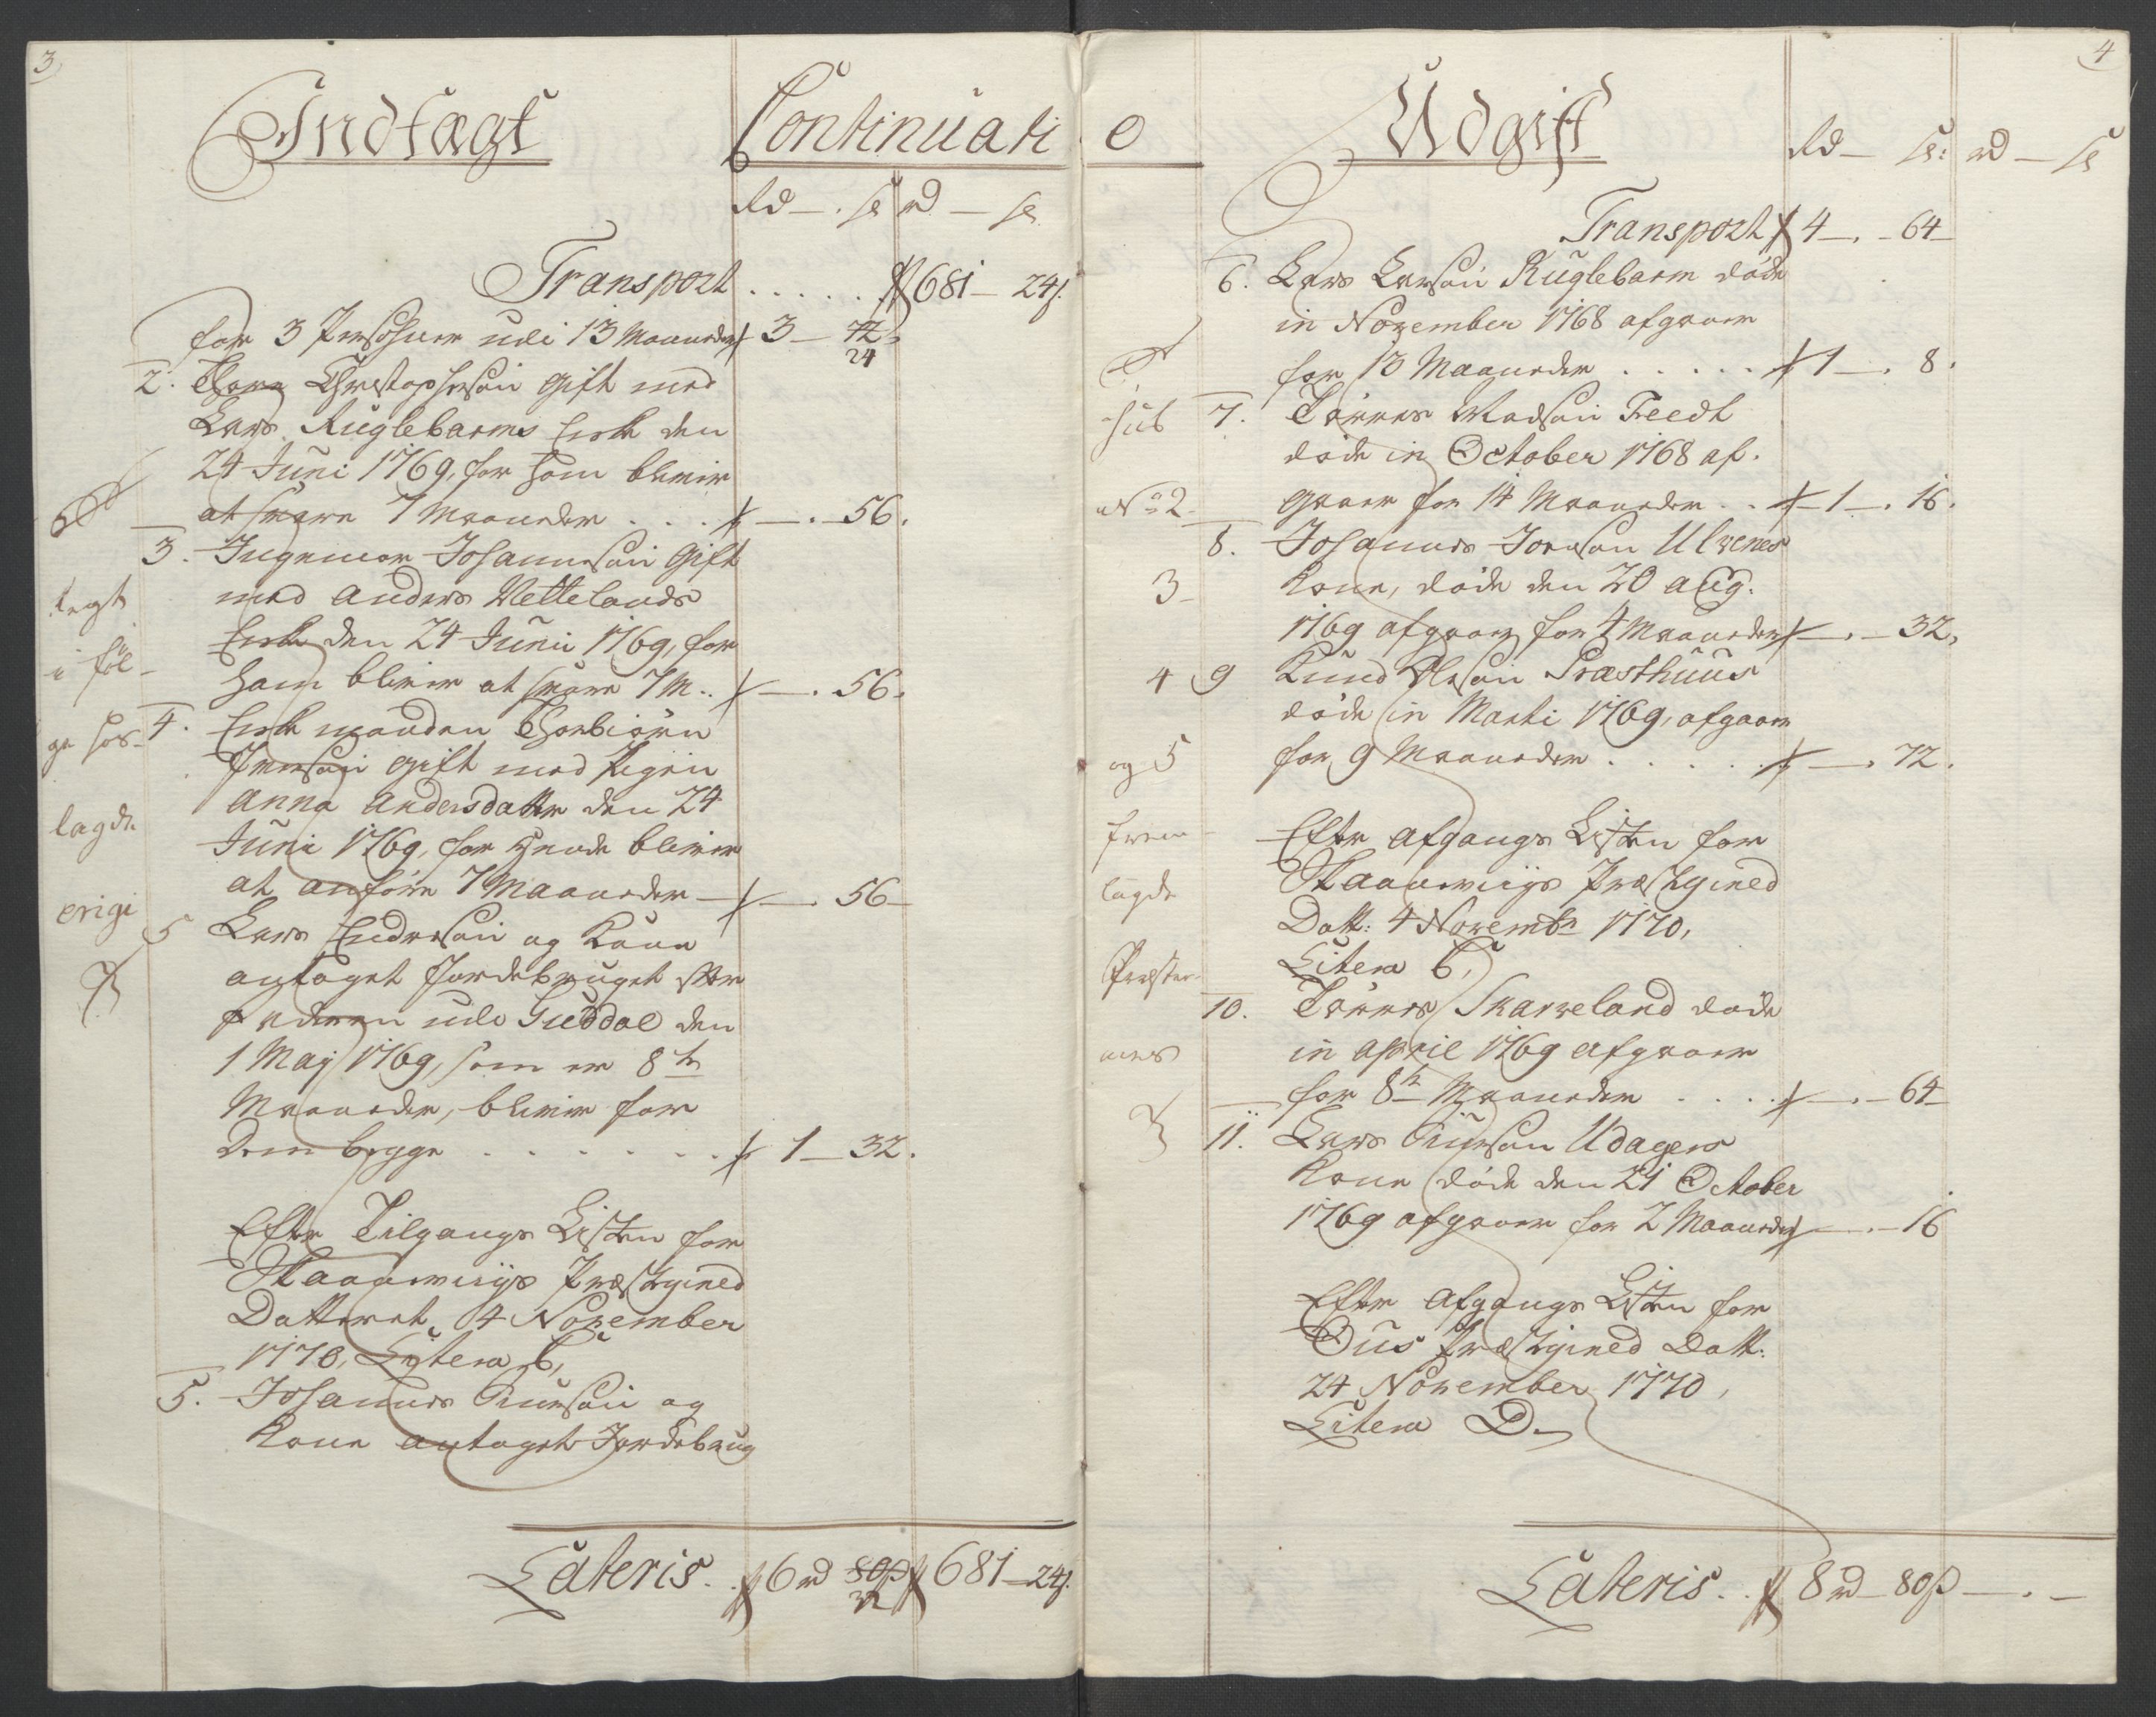 3
Indtægt Continuati
Rd — ß rd — ß
Transport . . . . . 681 — 24ß.
for 3 Persohner udi 13 Maaneder 3 — 72
24
2. Thore Christophersøn gift med
Lars Ruglebarms Enke den
24 Juni 1769, for ham bliver
at svare 7 Maaneder . . . — . 56.
3. Ingemor Johannesøn gift
med Anders Vettelands
Enke den 24 Junii 1769, for
ham bliver at svare 7 M.. — . 56.
4. Enke manden Thorbiørn
Iversøn gift med Pigen
Anna Andersdatter den 24
Juni 1769, for hende bliver
at anføre 7 Maaneder — . 56
5 Lars Endresøn og Kone
antaget Jordebruget efter
Faderen udi Guddal den
1 Maij 1769, som er 8te
Maaneder, bliver for
dem begge . . . . . . 1 — 32.
Efter Tilgangs Listen for
Præstegield
Datteret 4 November
1770, Litera C,
5. Johannes Siursøn og
Kone antaget Jordebrug
Lateris. 6 rd 80ß 681 — 24ß.
32
tegt
i føl-
ge hos-
lagde
origi

4
o Udgift
Rd — ß: rd — ß
Transport 4 — . — 64 —
6. Lars Larsøn Ruglebarm døde
in November 1768 afgaaer
for 13 Maaneder . . . . . 1 — . 8.
7. Tørres Madsøn Treedt
døde in October 1768 af-
gaaer for 14 Maaneder . . 1 — . 16.
8. Johannes Ulvenes
Kone, døde den 20 Aug.
1769 afgaaer for 4 Maaneder — . — 32,
9 Knud Olesøn Præsthuus
døde in Marti 1769, afgaaer
for 9 Maaneder . . . . . — . 72.
Efter Afgangs Listen for
Præstegield
Datt: 4 Novembr 1770,
Litera C,
10. Tørres Skarveland døde
in April 1769 afgaaer
for 8te Maaneder . . . . — . — 64
11. Lars Siursøn Udagers
Kone døde den 21 October
1769 afgaaer for 2 Maaneder — . — 16
Efter Afgangs Listen for
Ous Præstegield Datt:
24 November 1770,
Litera D.
Lateris. . 8 rd — 80ß — . —
sub
No 2
3
4
og 5
frem
lagde
Præster-
nes